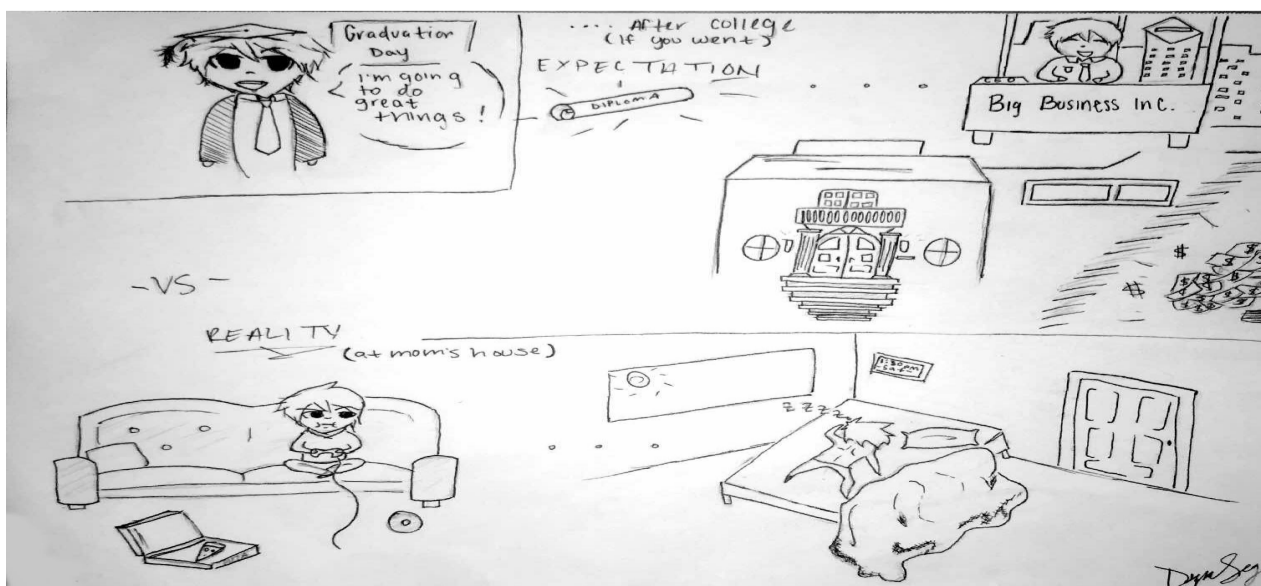 Graduation
Day
I'm going
to do
great
things!
.... After college
(if you went)
EXPECTATION
DIPLOMA
Big Business Inc.
$
$
-VS-
REALITY
(at mom's house)
ZZZZ
1:30pm
-Sat-